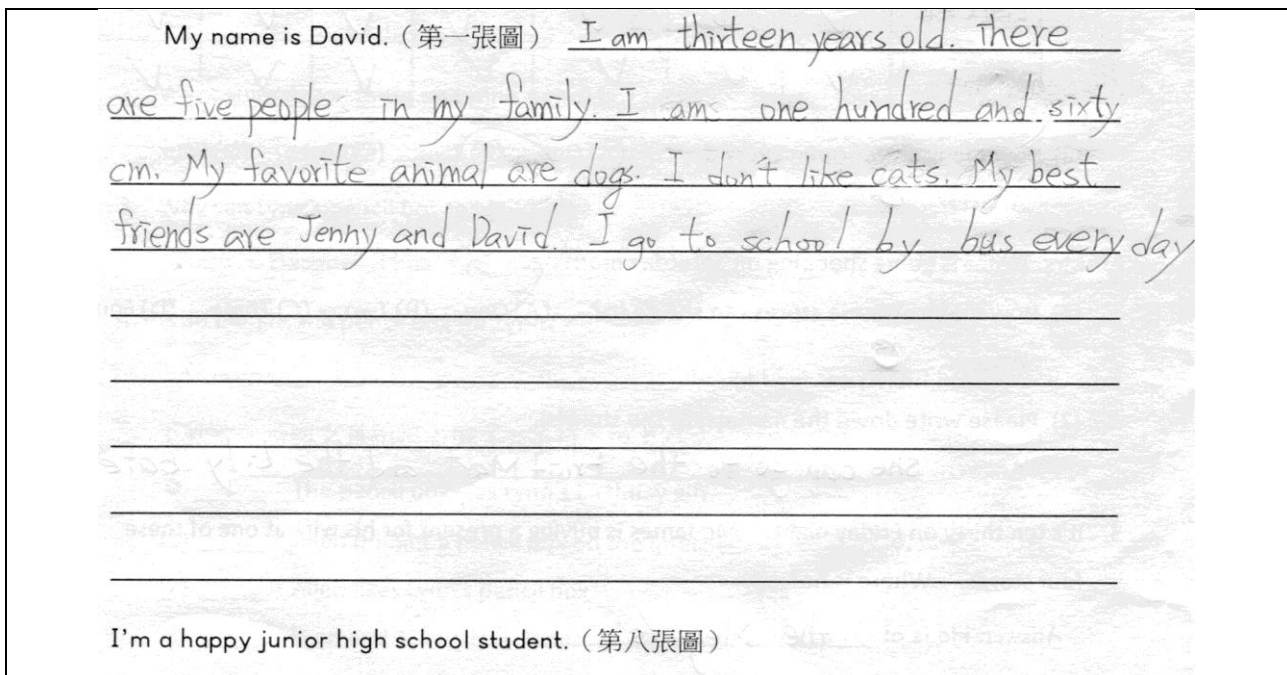 My name is David.（第一張圖） I am thirteen years old. There
are five people in my family. I am one hundred and sixty
cm. My favorite animal are dogs. I don't like cats. My best
friends are Jenny and David. I go to school by bus every day
I'm a happy junior high school student.（第八張圖）